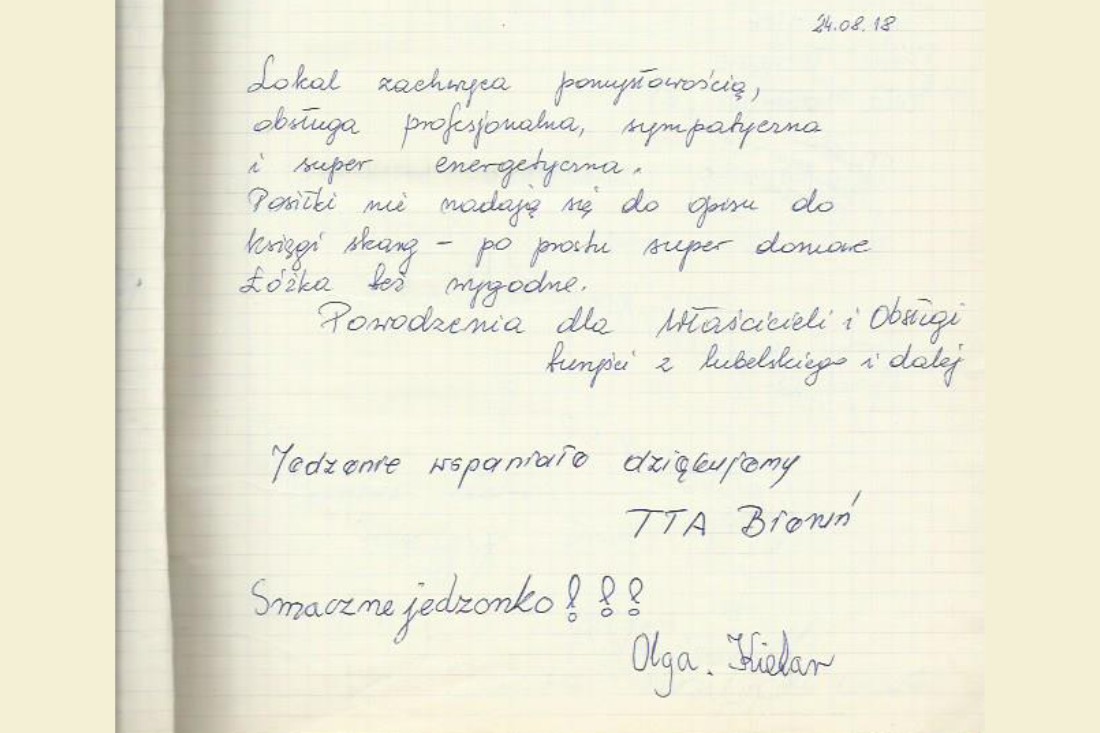 24.08.18
Lokal zachwyca pomysłowością,
obsługa profesjonalna, sympatyczna
i super energetyczna.
Posiłki nie nadają się do opisu do
księgi skarg – po prostu super domowe
Łóżka też wygodne.
Powodzenia dla Właścicieli i Obsługi
z lubelskiego i dalej
Jedzenie wspaniałe dziękujemy
TTA
Smaczne jedzonko!!!
Olga. Kielar